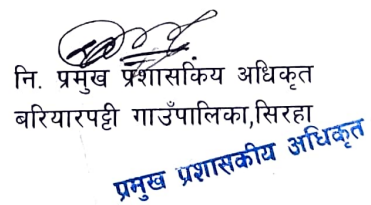 नि. प्रमुख प्रशासकिय अधिकृत
बरियारपट्टी गाउँपालिका,सिरहा
प्रमुख प्रशासकीय अधिकृत